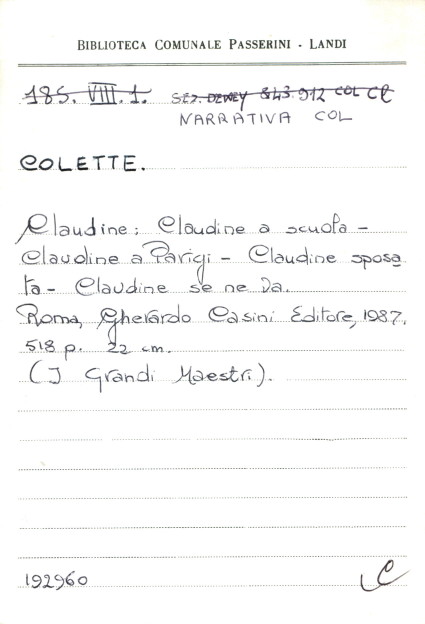 BIBLIOTECA COMUNALE PASSERINI - LANDI
185. VIII. 1. SEZ. DEWEY 843.912 COL CL
NARRATIVA COL
COLETTE.
Claudine: Claudine a scuola -
Claudine a Parigi - Claudine sposa
ta - Claudine se ne va.
Roma, Gherardo Casini Editore, 1987.
518 p. 22 cm.
(I Grandi Maestri).
192960 C